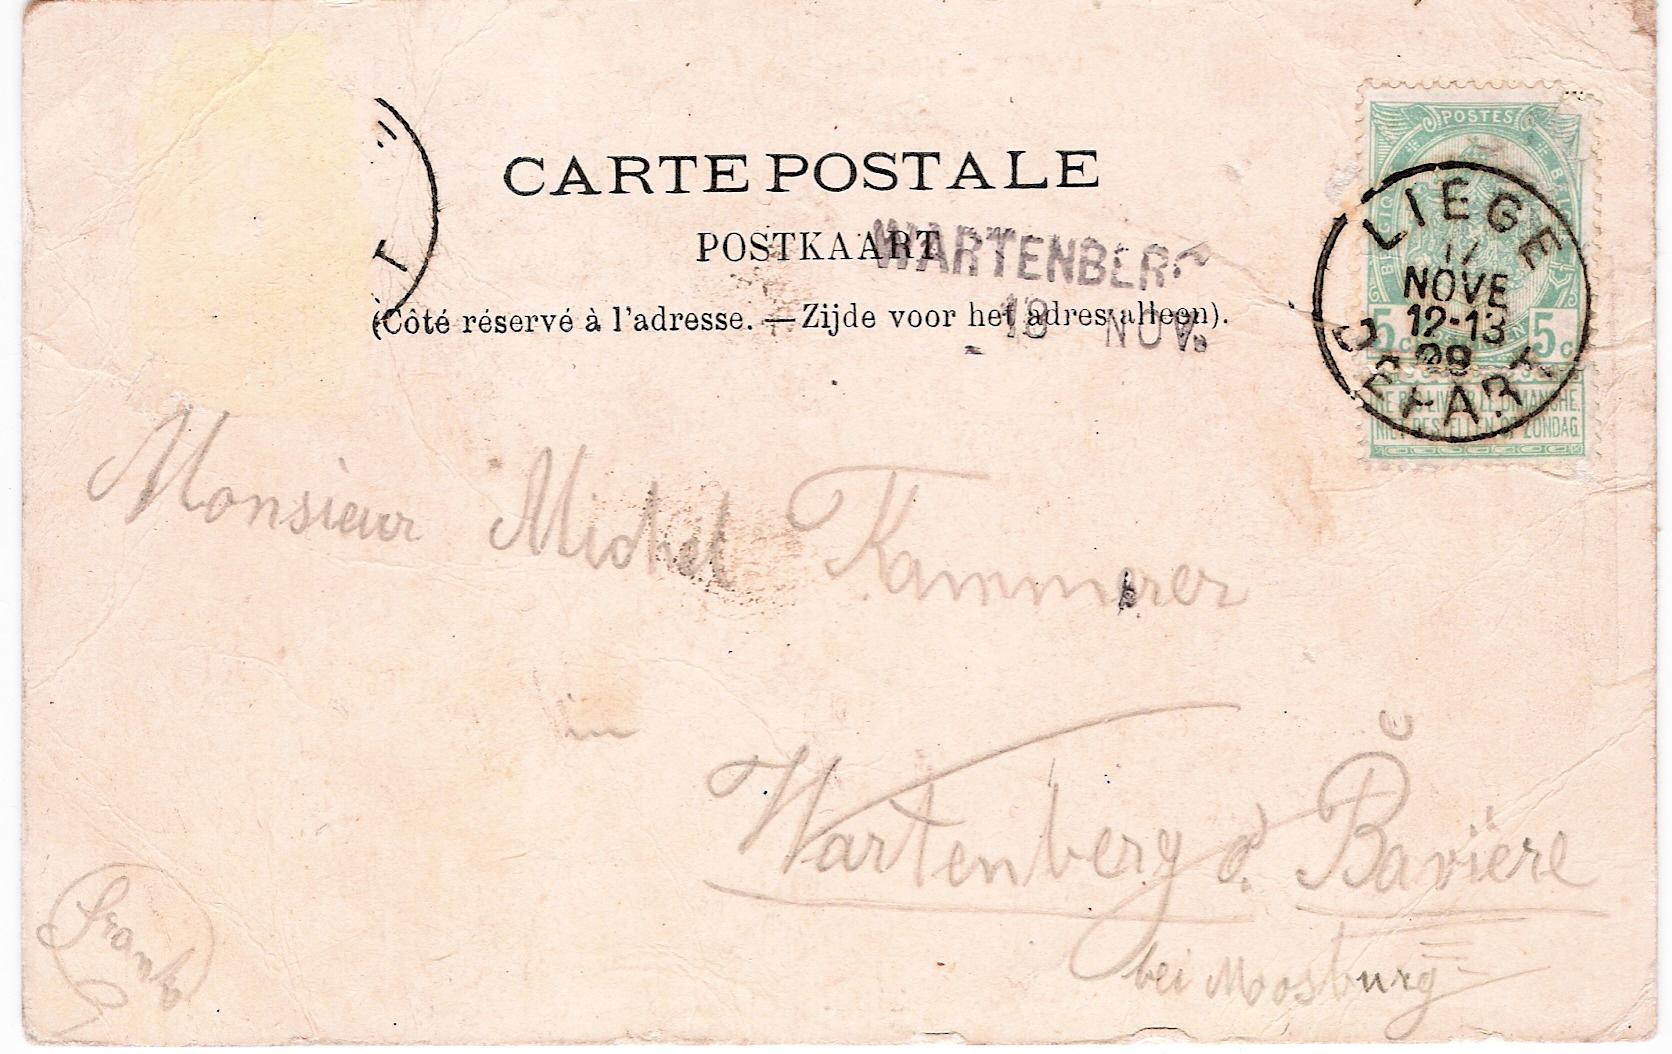 CARTE POSTALE
POSTKAART
(Côté réservé à l'adresse. — Zijde voor het adres alleen).
WARTENBERG
13 NOV.
POSTES
LIEGE
11
NOVE
12-13
DEPART
5 c 5 c
NE PAS LIVRER LE DIMANCHE.
NIET BESTELLEN OP ZONDAG.
Monsieur Michel Kammerer
in
Wartenberg d. Bavière
bei Moosburg
Frank